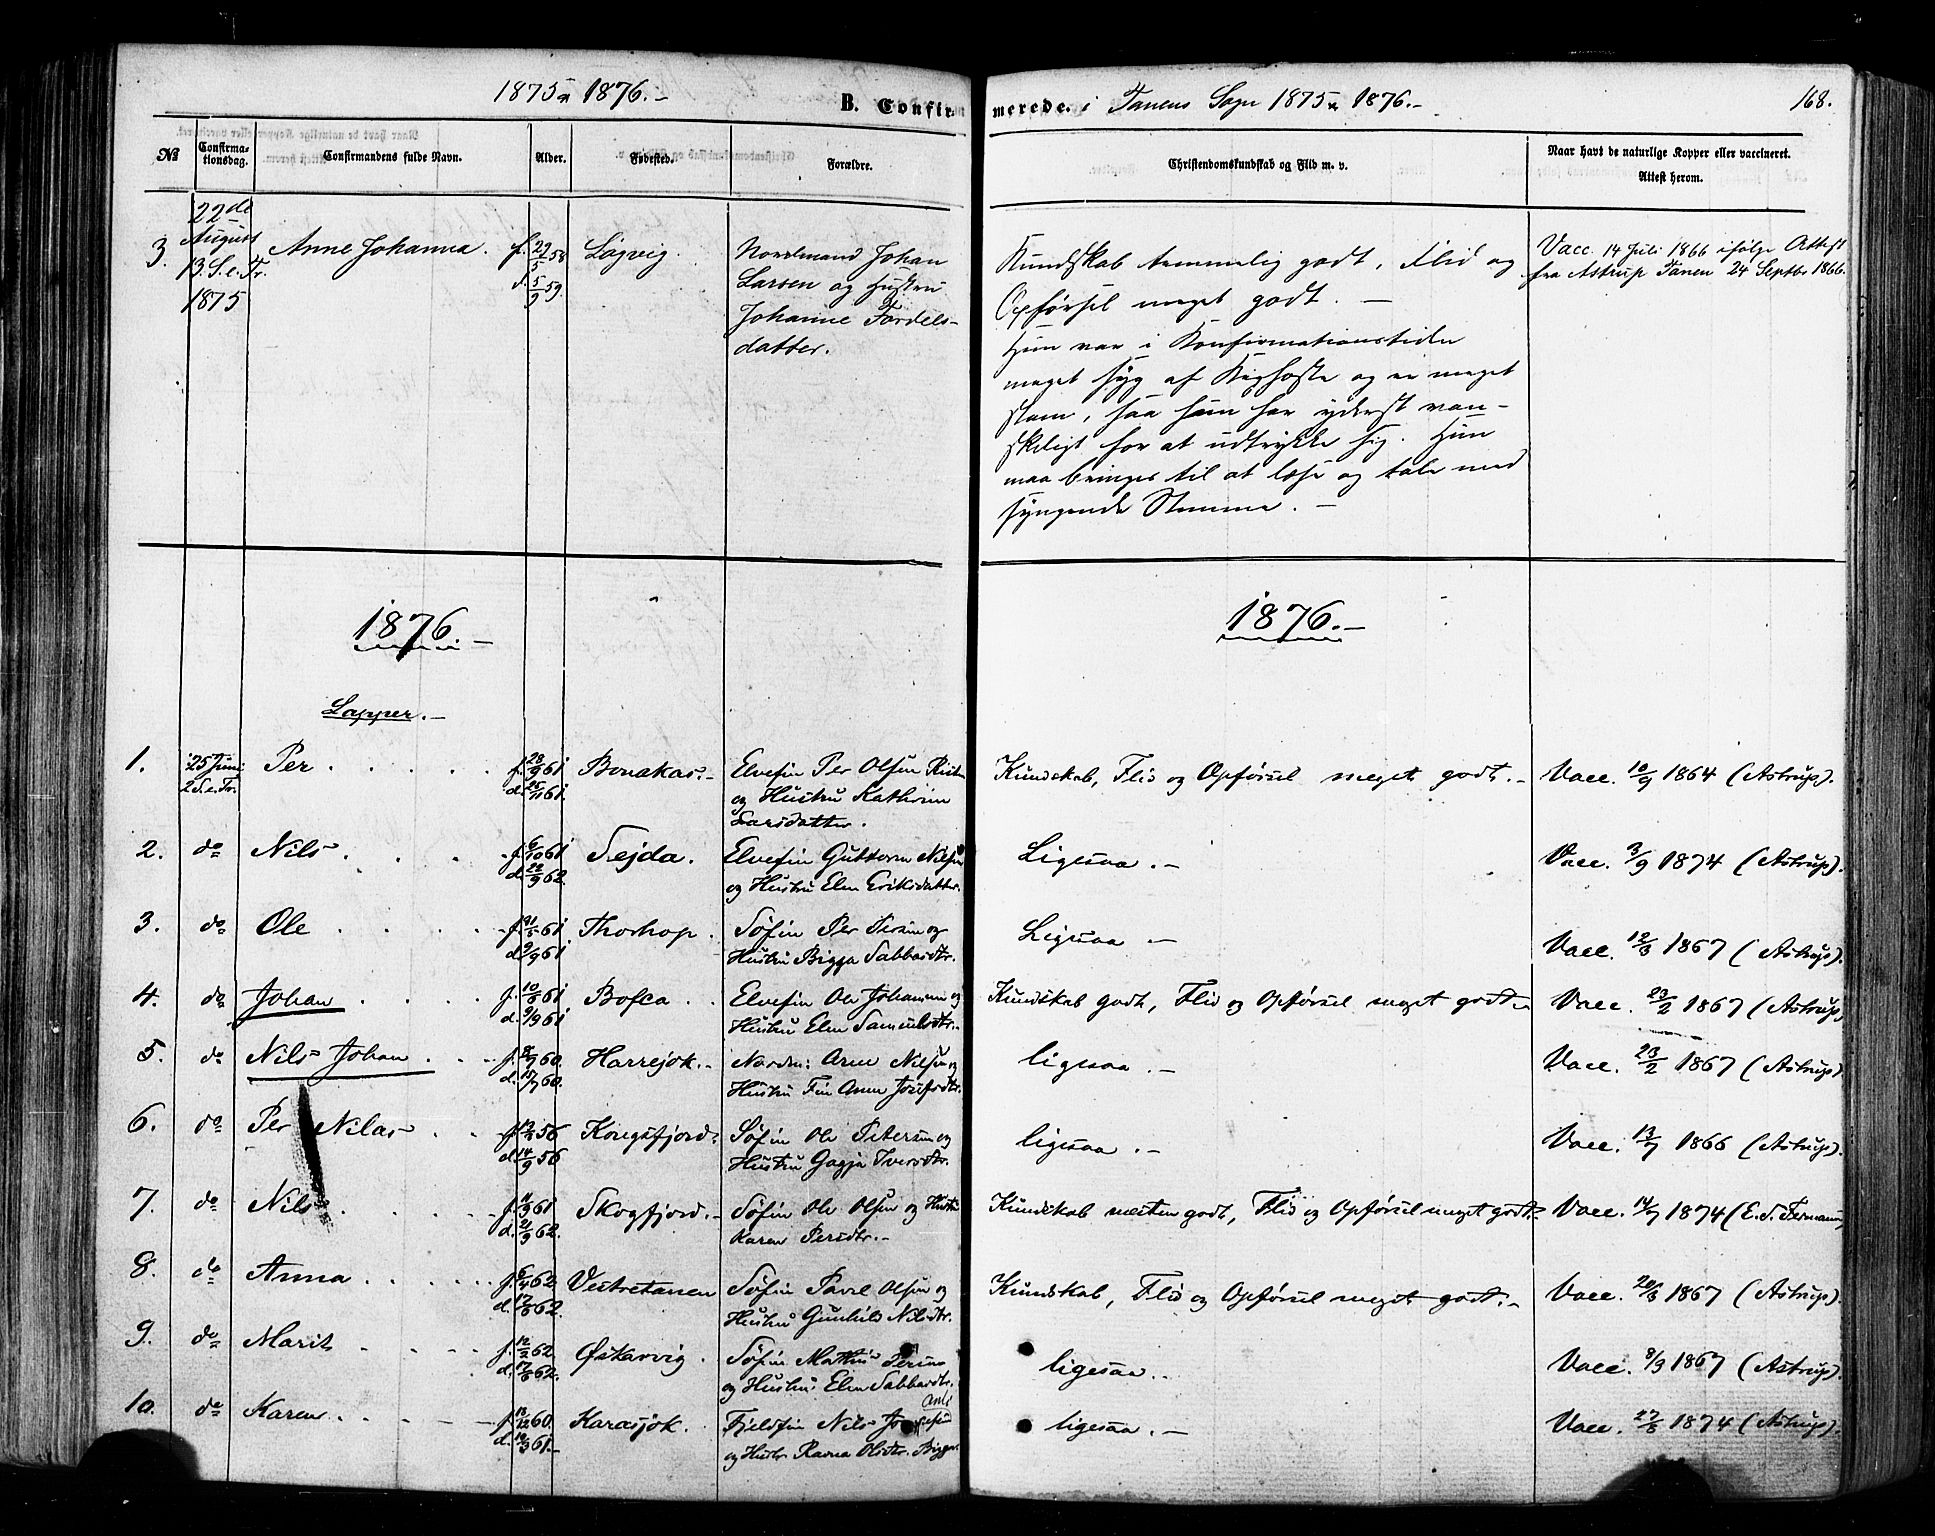 1875 & 1876.-
B. Confirmerede. i Tanens Sogn 1875 & 1876.-
168.
№
Confirmationsdag.
Confirmandens fulde Navn.
Alder.
Fødested.
Forældre.
Christendomskundskab og Flid m. v.
Naar havt de naturlige Kopper eller vaccineret.
Attest herom.
3.
22de
August
13. S. e. Tr.
1875
Anne Johanna.
f. 29/5 58
d. 5/9 59.
Løgvig.
Nordmand Johan
Larsen og Hustru
Johanne Fordels-
datter.
Kundskab temmelig godt, Flid og
Opførsel meget godt. —
Hun var i Konfirmationstiden
meget syg af Kighoste og er meget
stam, saa hun har yderst van-
skeligt for at udtrykke sig. Hun
maa bringes til at læse og tale med
syngende Stemme. —
Vacc. 14 Juli 1866 ifølge Attest
fra Astrup Tanen 24 Septbr 1866.
1876.-
1876.-
Lapper.-
1.
25 Juni
2 S. e. Tr.
Per
f. 28/9 61
d. 11 61.
Bonakas.-
Elvefin Per Olsen
og Hustru Kathrine
Larsdatter.
Kundskab, Flid og Opførsel meget godt.-
Vacc. 10/9 1864 (Astrup).
2.
do
Nils
f. 6/10 61
d. 22/9 62
Sejda.
Elvefin Guttorm Nilsen
og Hustru Elen Eriksdatter.
Ligesaa.-
Vacc. 3/9 1874 (Astrup).
3.
do
Ole
f. 31/5 61
d. 9/9 61
Thorhop.
Søfin Per Persen og
Hustru Bigga Sabbasdtr.
Ligesaa.-
Vacc. 12/3 1867 (Astrup).
4.
do
Johan
f. 10/6 61
d. 9/9 61
Bofca.
Elvefin Ole Johannesen og
Hustru Elen Samuelsdtr.-
Kundskab godt, Flid og Opførsel meget godt.-
Vacc. 23/2 1867 (Astrup)
5.
do
Nils Johan
f. 8/7 60.
d. 15/7 60.
Harrejok.-
Nordm: Arne Nilsen og
Hustru Fin Anne Josefsdtr.
ligesaa.-
Vacc. 23/2 1867 (Astrup)
6.
do
Per Nilas
f. 56
d. 14/9 56
Kongsfjord.
Søfin Ole Petersen og
Hustru Gagja Iversdtr.
ligesaa.-
Vacc. 13/7 1866 (Astrup).
7.
do
Nils
f. 61
d. 21/9 62.
Skogfjord.-
Søfin Ole Olsen og Hustru
Karen Persdtr.-
Kundskab næsten godt, Flid og Opførsel meget godt.-
Vacc. 14/7 1874
8.
do
Anna
f. 6/4 62
d. 17/8 62.
Vestretanen
Søfin Povel Olsen og
Hustru Gunhild Nilsdtr.
Kundskab, Flid og Opførsel meget godt.-
Vacc. 20/3 1867 (Astrup).
9.
do
Marit
f. 12/2 62
d. 17/8 62.
Øskarvig.
Søfin Mathis Persen
og Hustru Elen Sabbasdtr.
ligesaa.
Vacc. 8/9 1867 (Astrup).
10.
do
Karen
f. 12 60.
d. 61.-
Karasjok.
Fjeldfin Nils
og Hustr. Ravna Olsdtr. Bigga
ligesaa.-
Vacc. 27/8 1874 (Astrup).